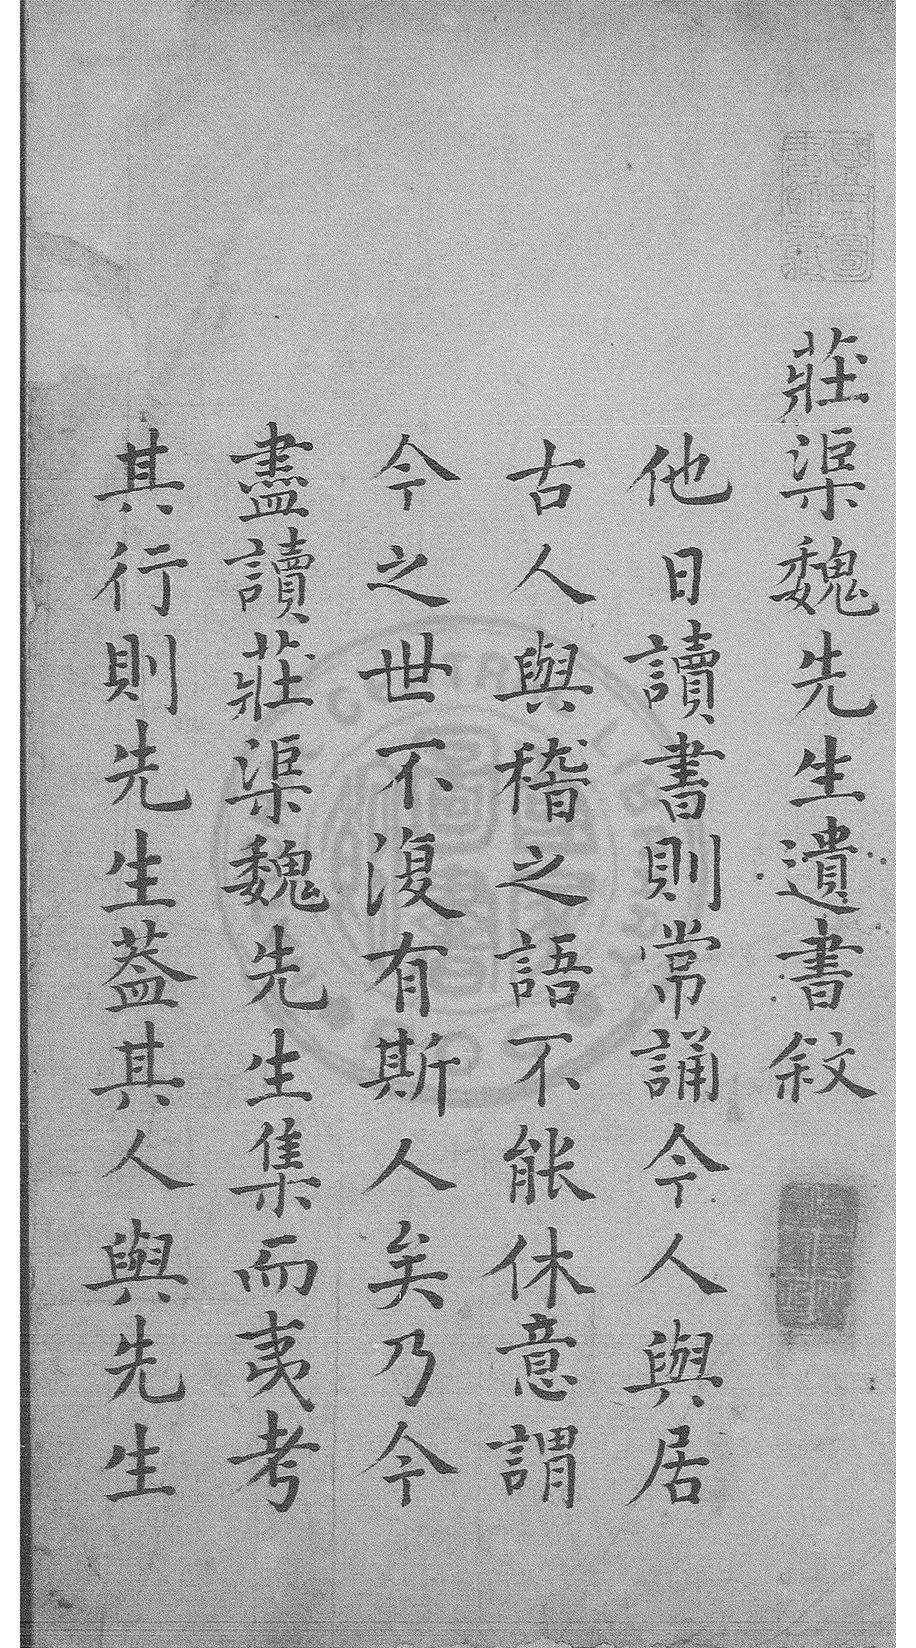 莊渠魏先生遺書敘
他日讀書則常誦今人與居
古人與稽之語不能休意謂
今之世不復有斯人矣乃今
盡讀莊渠魏先生集而夷考
其行則先生蓋其人與先生